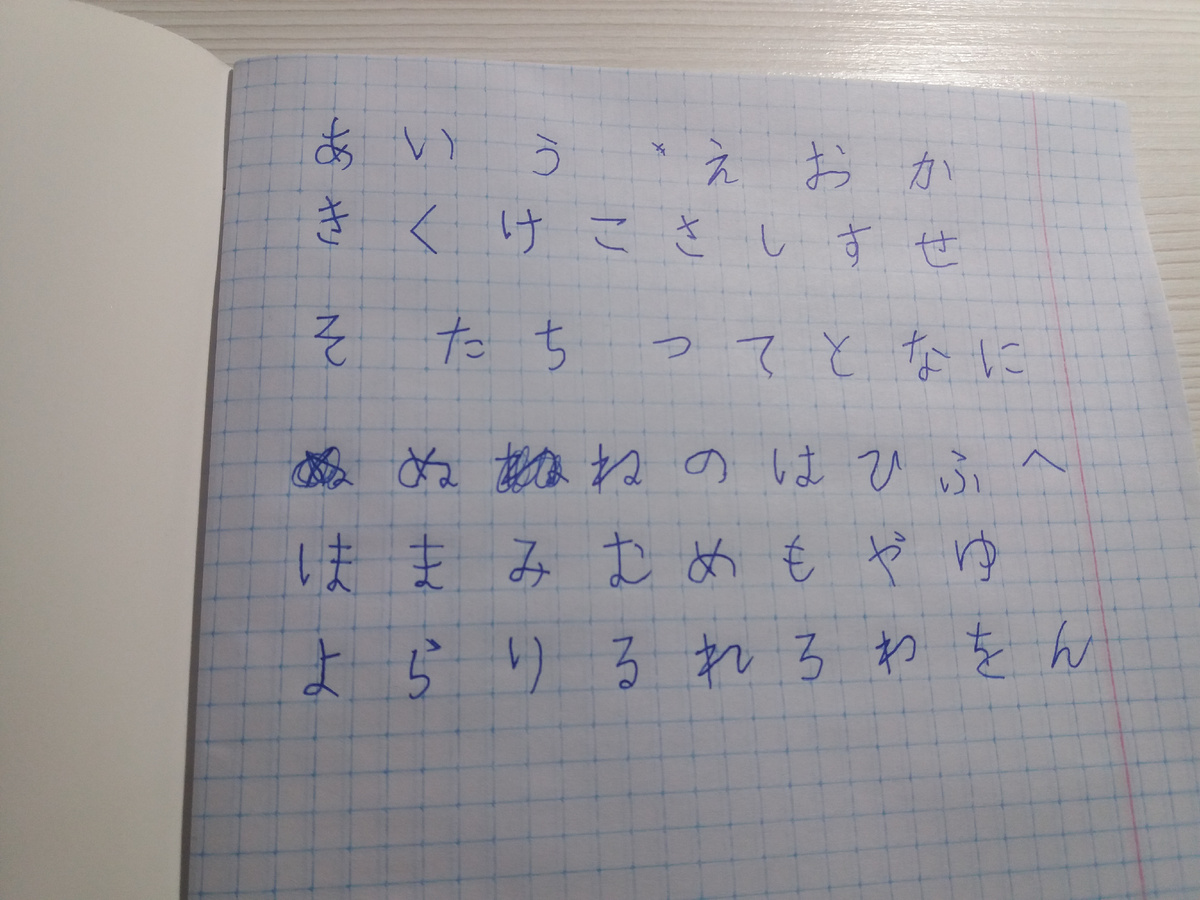 あいうえおか
きくけこさしすせ
そたちつてとなに
ぬねのはひふへ
ほまみむめもやゆ
よらりるれろわをん